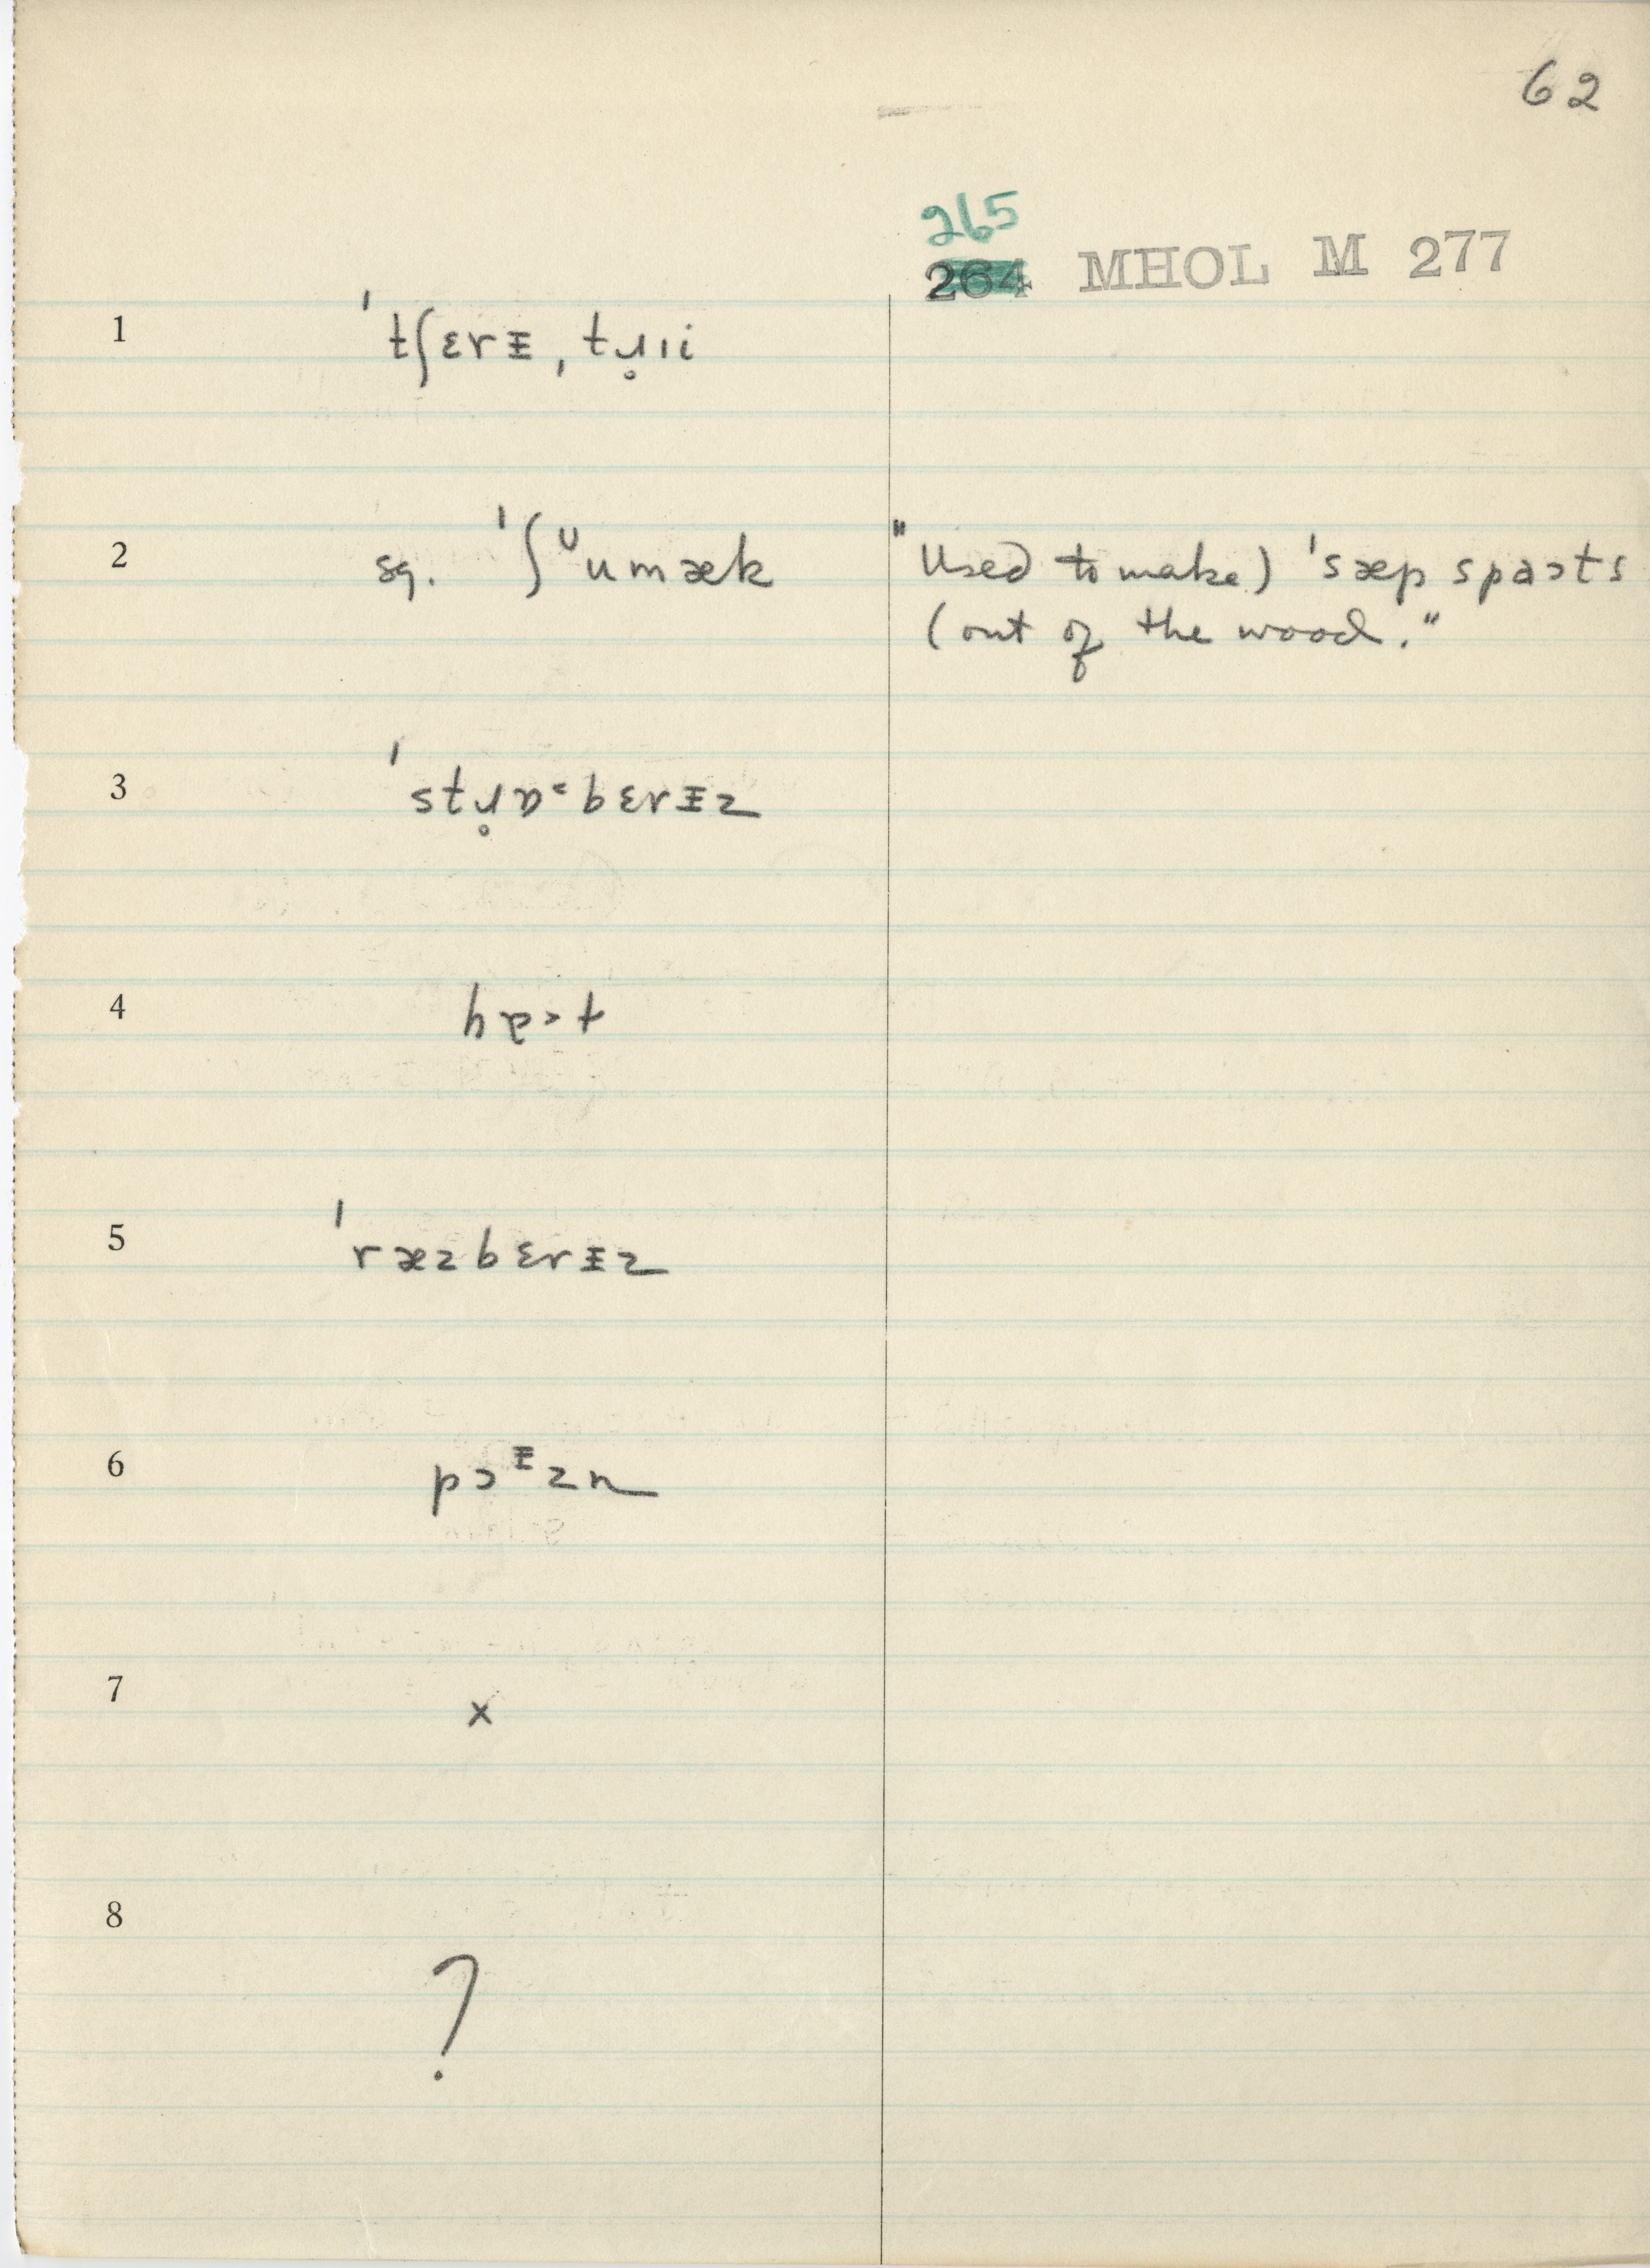 62
265
264 MHOL M 277
1 ˈtʃɛrᵻ, tɹ̥ɪi
2 sg. ˈʃᶷumæk "Used to make) ˈsæp spaɔts
(out of the wood."
3 ˈstɹ̥ɒ˞bɛrᵻz
4
5 ˈræzbɛrᵻz
6 pɔᵻzn
7 x
8 ?